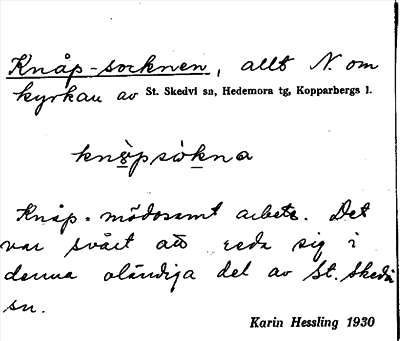 Knåp-socknen, allt N. om
kyrkan av St. Skedvi sn, Hedemora tg, Kopparbergs l.
knåpsòkna
Knåp = mödosamt arbete. Det
var svårt att reda sig i
denna oländiga del av St. Skedvi
sn.
Karin Hessling 1930